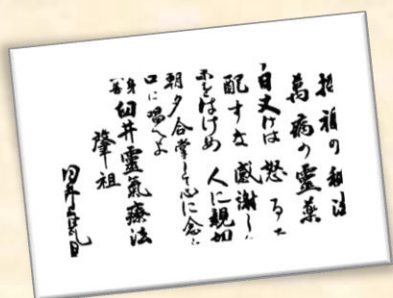 招福の秘法
萬病の靈薬
日丈けは 怒るな
配すな 感謝し
業をはけめ 人に親切
朝夕合掌して心に念
口に唱へよ
臼井靈氣療法
肇祖
臼井